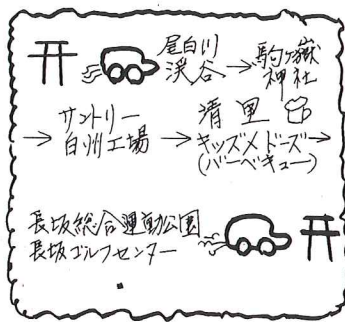 尾白川
渓谷 → 駒ヶ嶽
神社
→ サントリー
白州工場 → 清里
キッズメドーズ →
(バーベキュー)
長坂総合運動公園
長坂ゴルフセンター